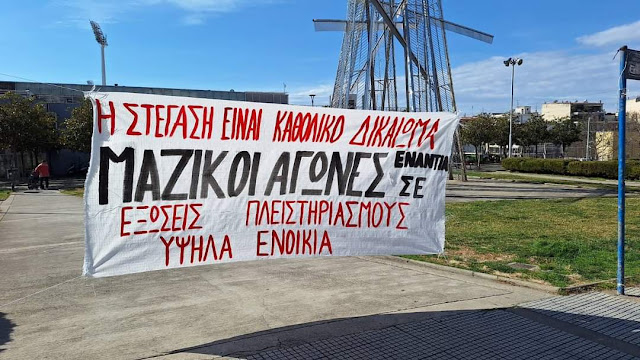 Η ΣΤΕΓΑΣΗ ΕΙΝΑΙ ΚΑΘΟΛΙΚΟ ΔΙΚΑΙΩΜΑ
ΜΑΖΙΚΟΙ ΑΓΩΝΕΣ ΕΝΑΝΤΙΑ ΣΕ
ΕΞΩΣΕΙΣ ΠΛΕΙΣΤΗΡΙΑΣΜΟΥΣ
ΥΨΗΛΑ ΕΝΟΙΚΙΑ